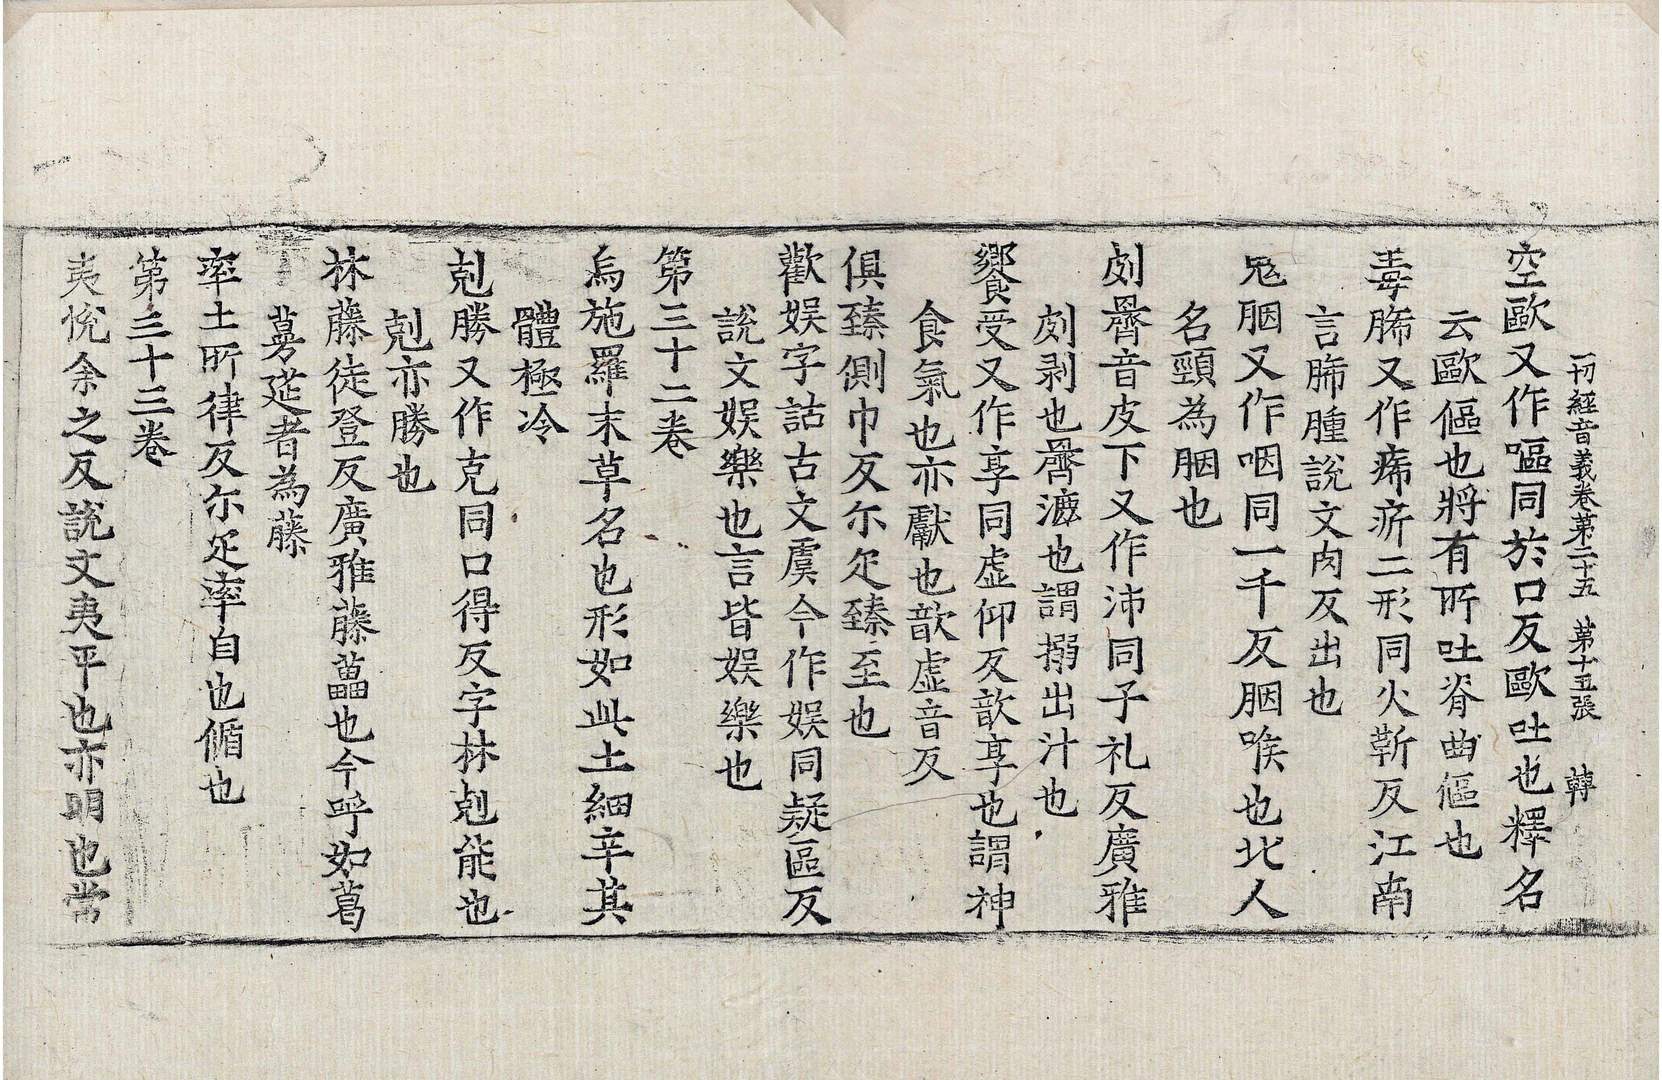 一切經音義卷第二十五 第十五張 䡖
空歐又作嘔同於口反歐吐也釋名
云歐傴也將有所吐脊曲傴也
毒䐅又作痛疨二形同火靳反江南
言䐅腫說文肉反出也
兎胭又作咽同一千反胭喉也北人
名頸為胭也
剠㿍音皮下又作沛同子礼反廣雅
剠剥也㿍漉也謂搦出汁也
饗受又作享同虛仰反歆享也謂神
食氣也亦獻也歆虛音反
俱臻側巾反尓疋臻至也
歡娱字詁古文虞今作娱同疑區反
說文娱樂也言皆娱樂也
第三十二卷
烏施羅末草名也形如此土細辛其
體極冷
剋勝又作克同口得反字林剋能也
剋亦勝也
林藤徒登反廣雅藤藟也今呼如葛
蔓莚者為藤
率土所律反尓疋率自也循也
第三十三卷
夷悅余之反說文夷平也亦明也常